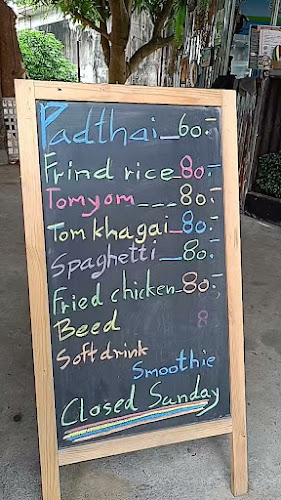 Padthai_60.-
Frind rice_80.-
Tomyom___80.-
Tomkhagai_80.-
Spaghetti_80.-
Fried chicken_80.-
Beed 8
Softdrink
Smoothie
Closed Sunday